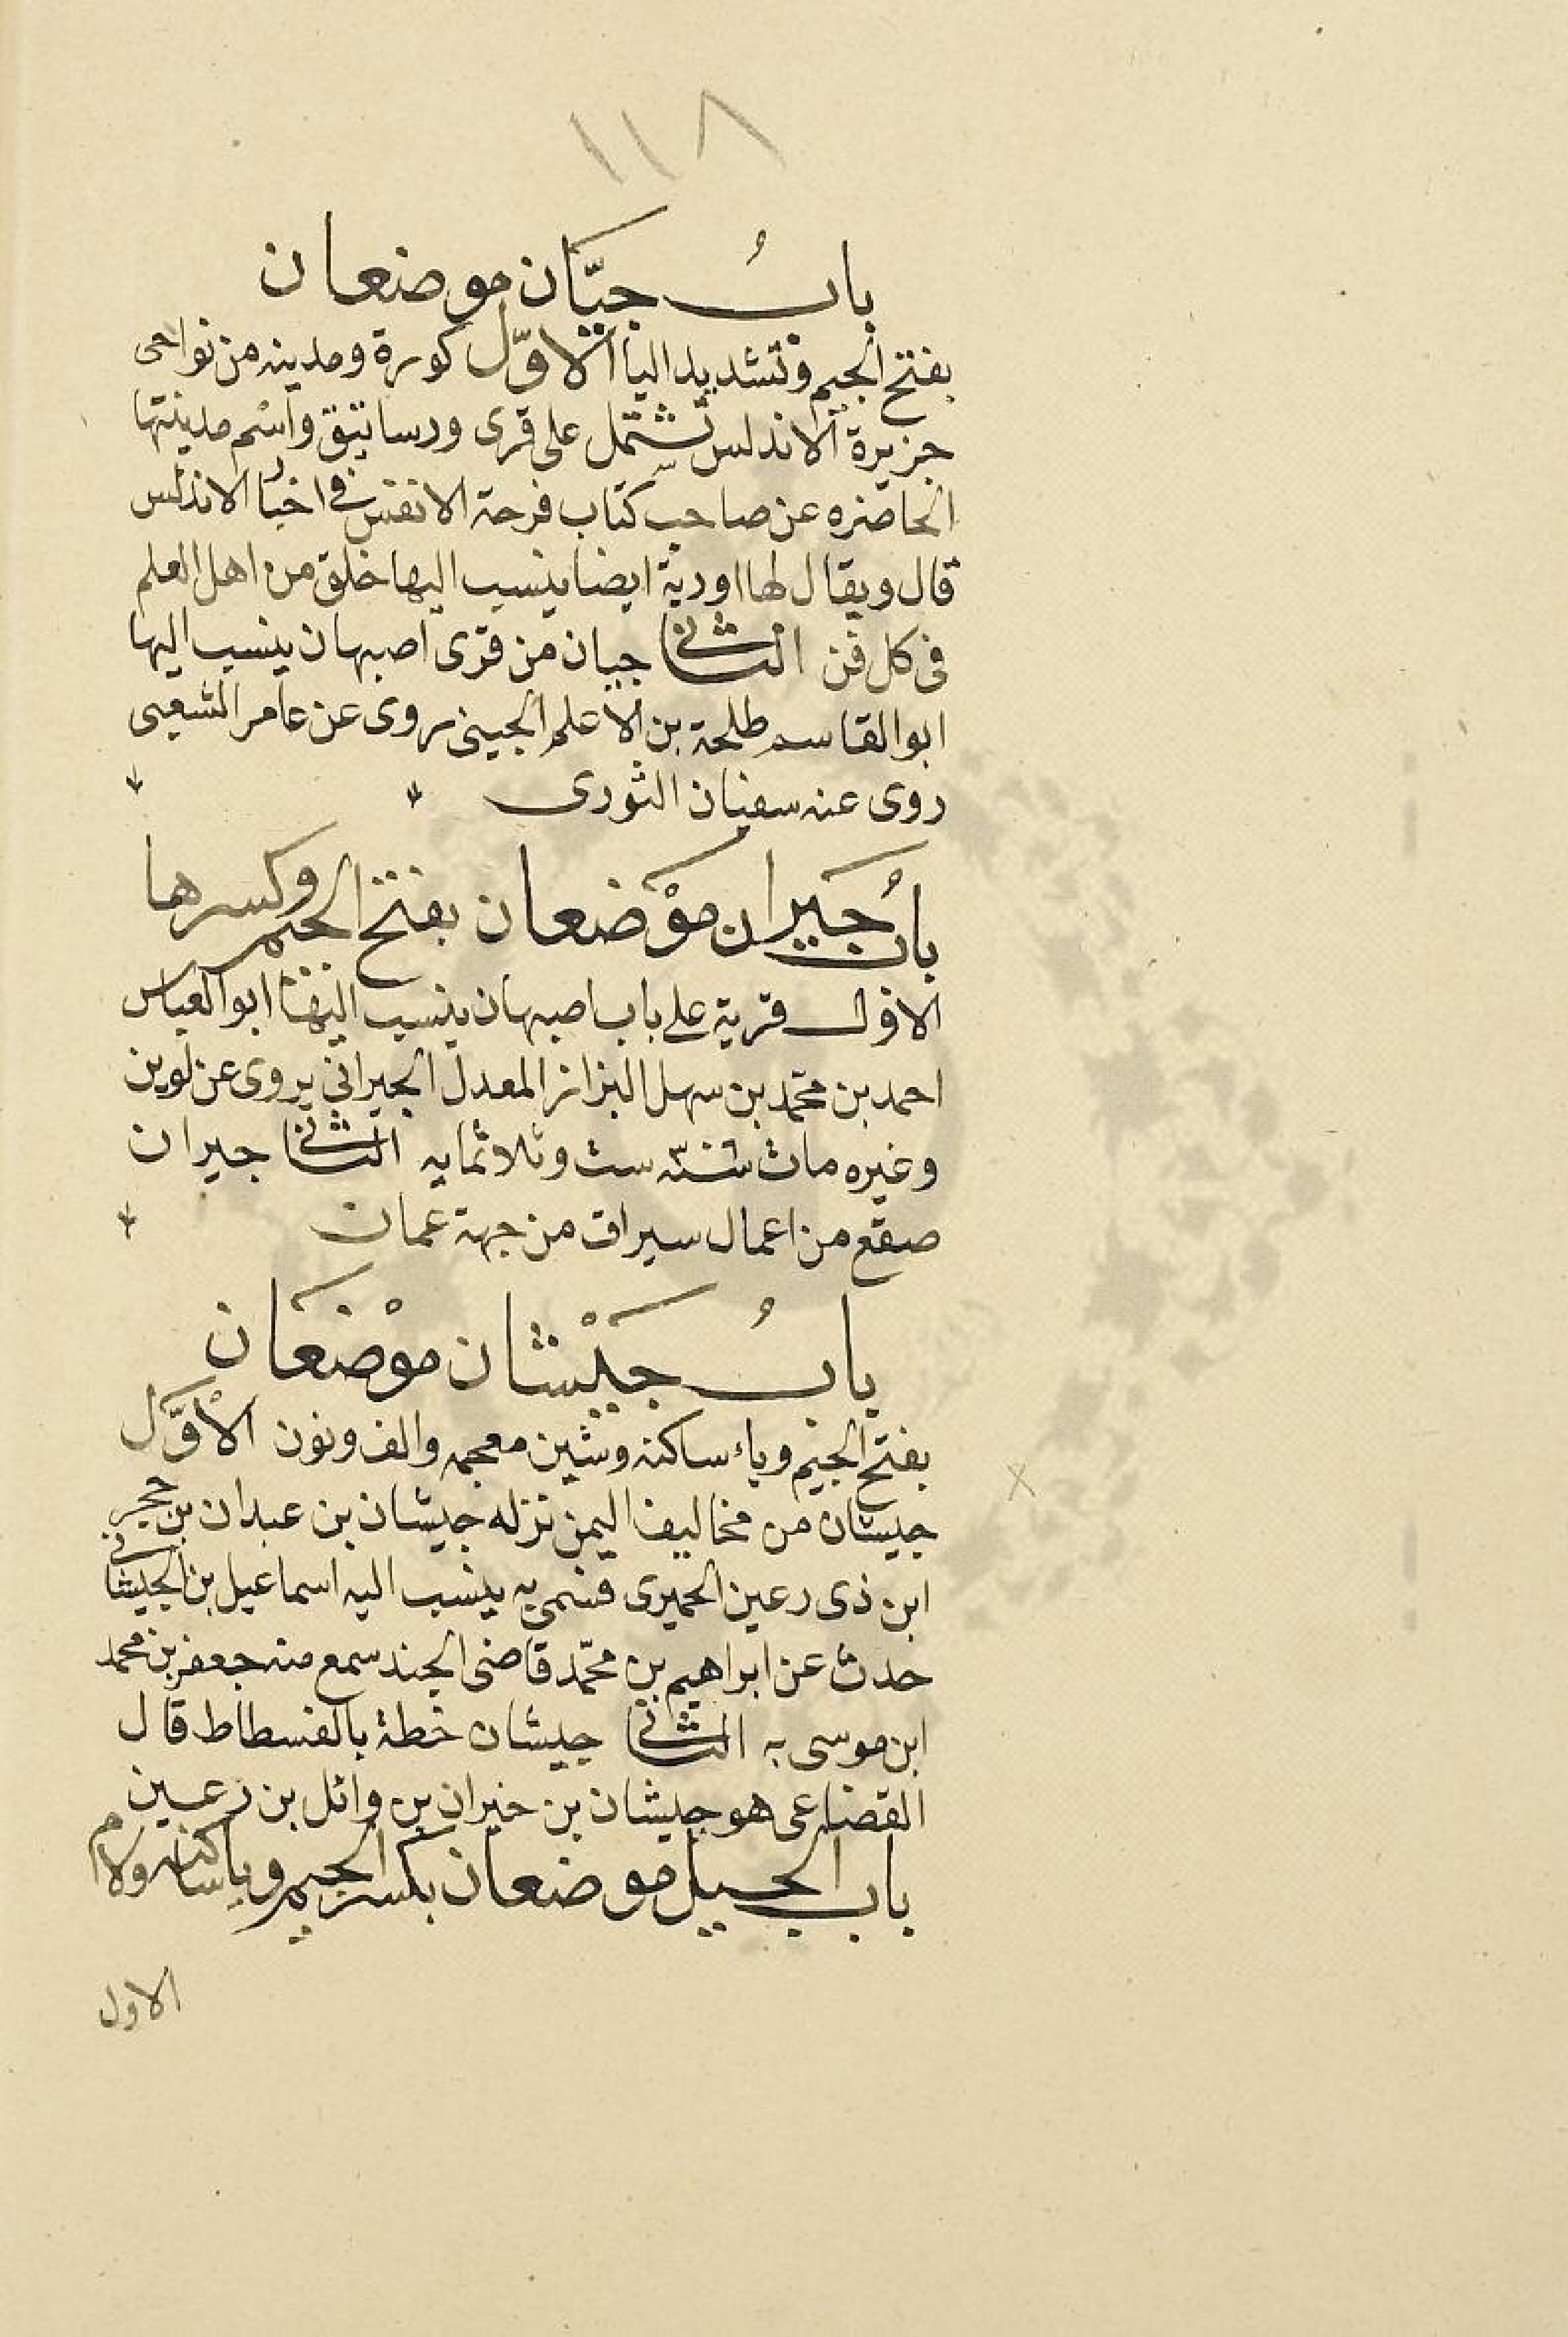 ١١٨
بابُ جيّان موضعان
بفتح الجيم وتشديد اليا الاوّل كورة ومدينه من نواحى
جزيرة الاندلس تشتمل على قرى ورساتيق واسم مدينتها
الحاضره عن صاحب كتاب فرحة الانفس فى اخبار الاندلس
قال ويقال لها اوربة ايضا ينسب اليها خلق من اهل العلم
فى كل فن الثانى جيان من قرى اصبهان ينسب اليها
ابوالقاسم طلحة بن الاعلم الجينى روى عن عامر الشعبى
روى عنه سفيان الثورى
بابُ جَيران موْضعان بفتح الجيم وكسرها
الاول قرية على باب اصبهان ينسب اليها ابوالعباس
احمد بن محمّد بن سهل البزاز المعدل الجيرانى يروى عن لوين
وغيره مات سنة ست وثلاثمايه الثانى جيران
صقع من اعمال سيراف من جهة عمان
بابُ جَيْشان موْضعَان
بفتح الجيم وياء ساكنه وشين معجمه والف ونون الاوَّل
جيشان من مخاليف اليمن نزله جيشان بن عبدان بن حجر
ابن ذى رعين الحميرى فسمى به ينسب اليه اسماعيل بن الجيشانى
حدث عن ابراهيم بن محمّد قاضى الجند سمع منه جعفر بن محمد
ابن موسى به الثانى جيشان خطة بالفسطاط قال
القضاعى هو جيشان بن خيران بن وائل بن رعين
باب الجيل موضعان بكسر الجيم ويا ساكنه ولام
الاول